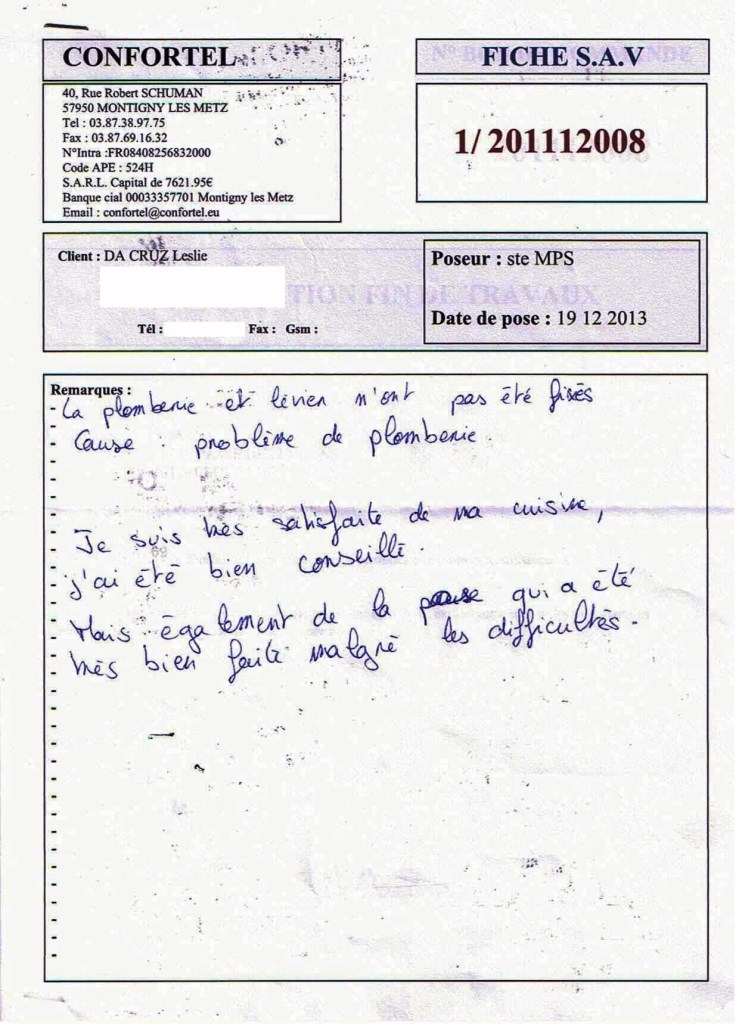 CONFORTEL
FICHE S.A.V
40, Rue Robert SCHUMAN
57950 MONTIGNY LES METZ
Tel : 03.87.38.97.75
Fax : 03.87.69.16.32
N°Intra :FR08408256832000
Code APE : 524H
S.A.R.L. Capital de 7621.95€
Banque cial 00033357701 Montigny les Metz
Email : confortel@confortel.eu
1/ 201112008
Client : DA CRUZ Leslie
Tél : Fax : Gsm :
Poseur : ste MPS
Date de pose : 19 12 2013
TION FIN DE TRAVAUX
Remarques :
La plomberie et levier n'ont pas été fixés
Cause : problème de plomberie.
Je suis très satisfaite de ma cuisine,
j'ai été bien conseillé.
Mais également de la pause qui a été
très bien faite malgré les difficultés.